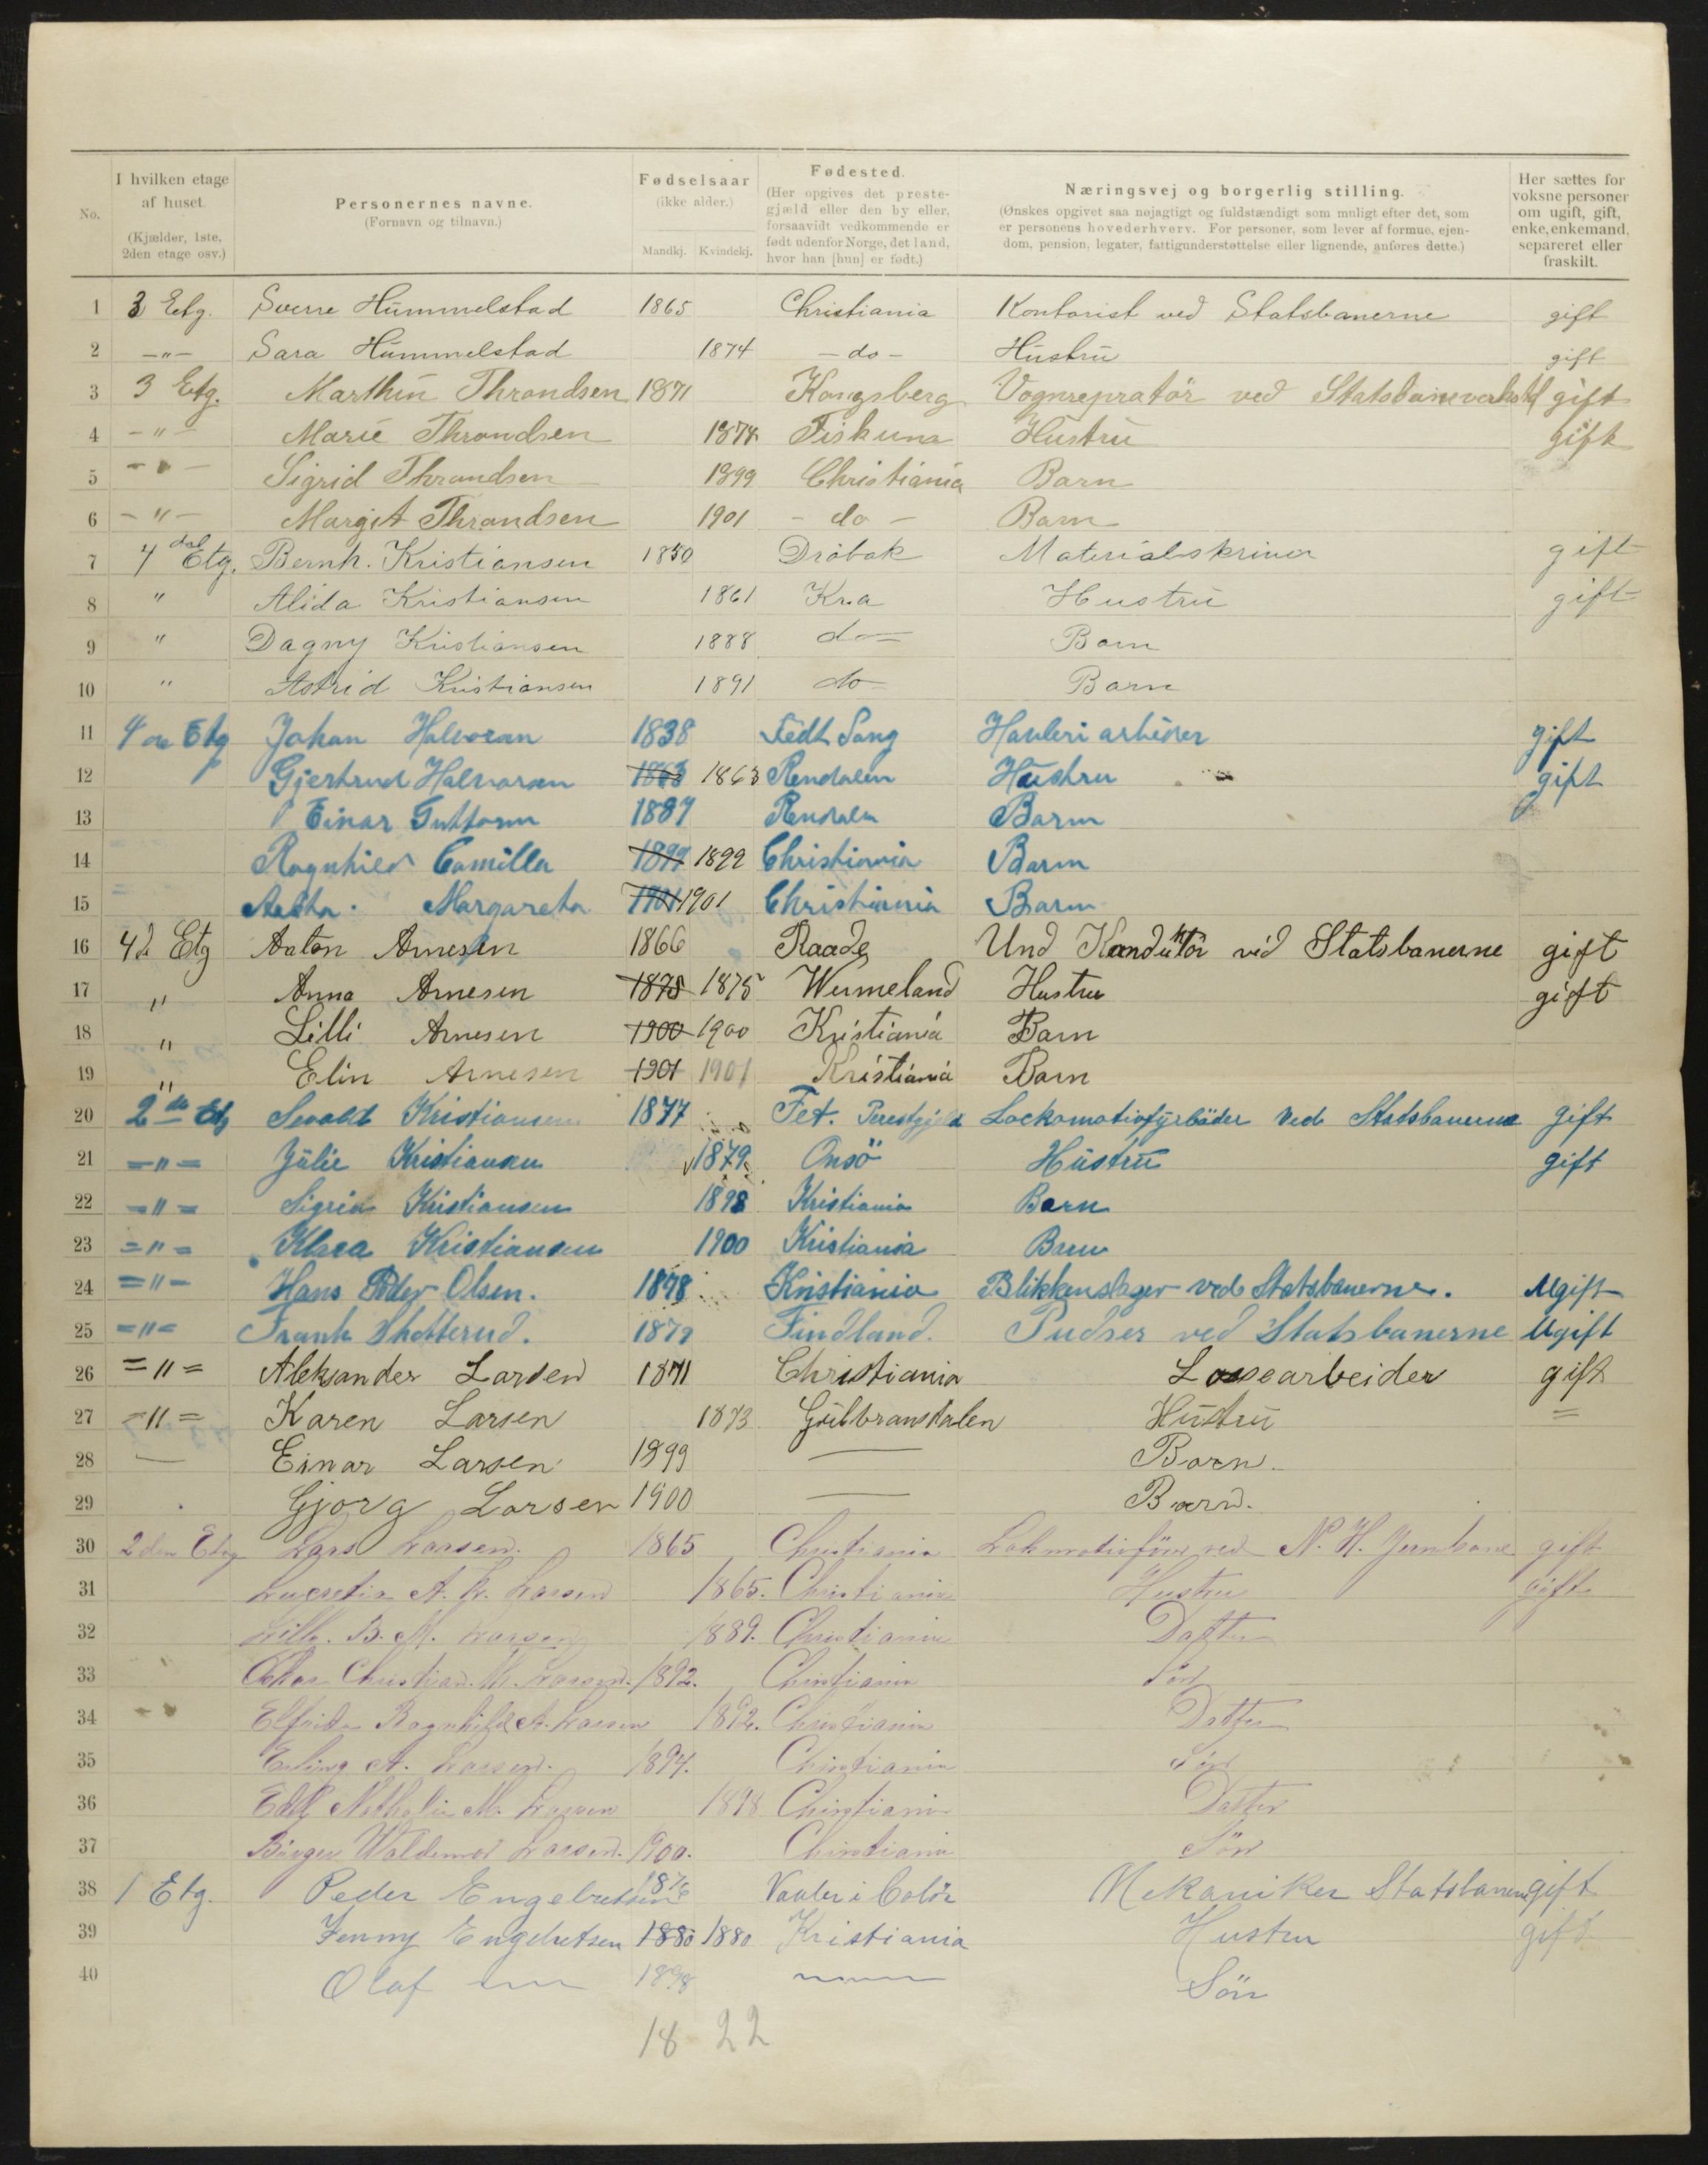 No.
I hvilken etage af huset. (Kjælder, 1ste, 2den etage osv.)
Personernes navne. (Fornavn og tilnavn.)
Fødselsaar (ikke alder.) Mandkj. Kvindekj.
Fødested. (Her opgives det prestegjæld eller den by eller, forsaavidt vedkommende er født udenfor Norge, det land, hvor han [hun] er født.)
Næringsvej og borgerlig stilling. (Ønskes opgivet saa nøjagtigt og fuldstændigt som muligt efter det, som er personens hovederhverv. For personer, som lever af formue, ejendom, pension, legater, fattigunderstøttelse eller lignende, anføres dette.)
Her sættes for voksne personer om ugift, gift, enke, enkemand, separeret eller fraskilt.
1 3 Etg. Sverre Hummelstad 1865 Christiania Kontorist ved Statsbanerne gift
2 -"- Sara Hummelstad 1874 - do - Hustru gift
3 3 Etg. Marthin Throndsen 1871 Kongsberg Vognrepratör ved Statsbaneverksted gift
4 -"- Marie Throndsen 1874 Fiskuna Hustru gift
5 -"- Sigrid Throndsen 1899 Christiania Barn
6 -"- Margit Throndsen 1901 - do - Barn
7 4 Etg. Bernh. Kristiansen 1850 Dröbak Materialskriver gift
8 " Alida Kristiansen 1861 Kr.a Hustru gift
9 " Dagny Kristiansen 1888 do Barn
10 " Astrid Kristiansen 1891 do Barn
11 4 de Etg Johan Halvorsen 1838 Havleri arbeider gift
12 Gjertrud Halvorsen 1863 1863 Rendalen Hustru gift
13 Einar Guttorm 1887 Rendalen Barn
14 Ragnhild Camilla 1899 1899 Christiania Barn
15 Aasta Margareta 1901 1901 Christiania Barn
16 4d Etg Anton Arnesen 1866 Raade Und Konduktör ved Statsbanerne gift
17 " Anna Arnesen 1875 1875 Wermeland Hustru gift
18 " Lilli Arnesen 1900 1900 Kristiania Barn
19 " Elin Arnesen 1901 1901 Kristiania Barn
20 2de Etg Sevald Kristiansen 1877 Fet. Prestgjeld Lockomotivfyrböder ved Statsbanerne gift
21 -"- Julie Kristiansen 1879 Onsö Hustru gift
22 -"- Sigrid Kristiansen 1898 Kristiania Barn
23 -"- Klara Kristiansen 1900 Kristiania Barn
24 -"- Hans Peder Olsen. 1878 Kristiania Blikkenslager ved Statsbanerne. Ugift
25 -"- Frank Skotterud. 1879 Findland. Pudser ved Statsbanerne Ugift
26 -"- Aleksander Larsen 1871 Christiania Lossearbeider gift
27 -"- Karen Larsen 1873 Gulbransdalen Hustru =
28 — Einar Larsen 1899 — Barn.
29 Gjorg Larsen 1900 — Barn.
30 2den Etg Lars Larsen. 1865 Christiania Lokomotivförer ved N. H. Jernbane gift
31 Lucretia A. L. Larsen 1865. Christiania Hustru gift
32 Lilly. B. M. Larsen 1889. Christiania Datter
33 Oskar Christian. M. Larsen. 1892. Christiania Sön
34 Elfrida Ragnhild A. Larsen 1892. Christiania Datter
35 Erling A. Larsen. 1894. Christiania Sön
36 Edth Nathalie M. Larsen 1898 Christiania Datter
37 Birger Waldemar Larsen. 1900. Christiania Sön
38 1 Etg. Peder Engebretsen 1876 Vaaler i Solör Mekaniker Statsbanen gift
39 Jenny Engebretsen 1880 1880 Kristiania Hustru gift
40 Olaf 1898 Sön
18 22